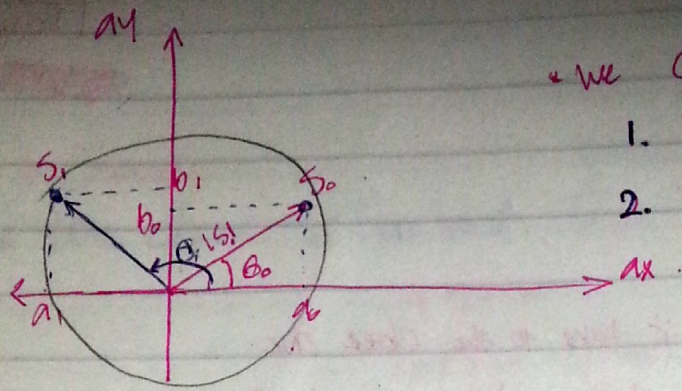 ay
* we
1.
S₁
b₁
S₀
b₀
2.
θ₁
|S|
θ₀
ax
a₁
a₀